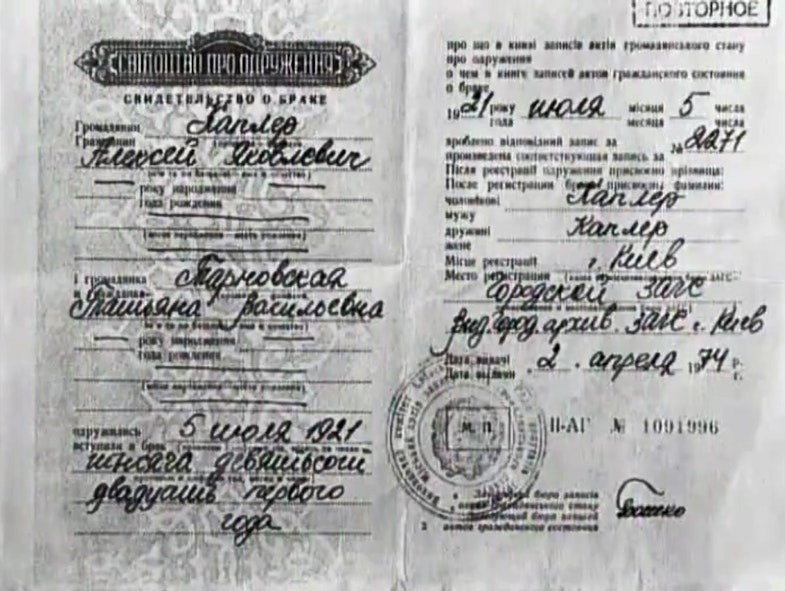 ПОВТОРНОЕ
СВІДОЦТВО ПРО ОДРУЖЕННЯ
СВИДЕТЕЛЬСТВО О БРАКЕ
Громадянин Каплер
Гражданин
Алексей Яковлович
року народження
года рождения
і громадянка Тарновская
и гражданка
Татьяна Васильевна
року народження
года рождения
одружились 5 июля 1921
вступили в брак
тысяча девятьсот
двадцать первого
года
про що в книзі записів актів громадянського стану
про одруження
о чем в книге записей актов гражданского состояния
о браке
1921 року июля місяця 5 числа
года месяца числа
зроблено відповідний запис за № 2271
произведена соответствующая запись за
Після реєстрації одруження присвоєно прізвища:
После регистрации брака присвоены фамилии:
чоловікові Каплер
мужу
дружині Каплер
жене
Місце реєстрації г. Киев
Место регистрации
Городской ЗАГС
Выд. Город. архив. ЗАГС г. Киев
Дата видачі 2 апреля 1974 р.
Дата выдачи г.
М. П.
II-АГ № 1091996
бюро записів
актів громадянського стану
Заведующий бюро записей
актов гражданского состояния